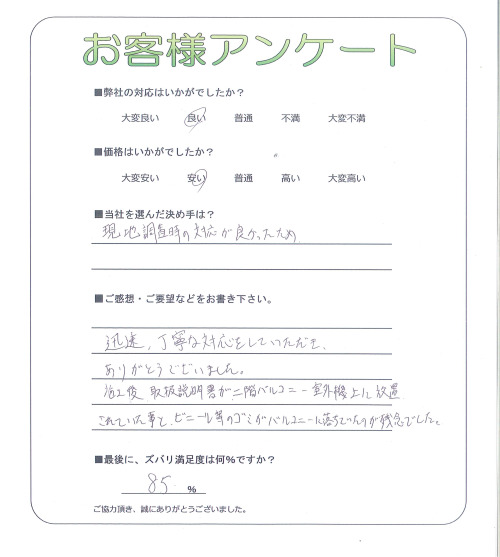 お客様アンケート
■弊社の対応はいかがでしたか？
大変良い 良い 普通 不満 大変不満
■価格はいかがでしたか？
大変安い 安い 普通 高い 大変高い
■当社を選んだ決め手は？
現地調査時の対応が良かったため
■ご感想・ご要望などをお書き下さい。
迅速、丁寧な対応をしていただき、
ありがとうございました。
施工後 取扱説明書が二階バルコニー室外機上に放置
されていた事と、ビニール等のゴミがバルコニーに落ちていたのが残念でした。
■最後に、ズバリ満足度は何％ですか？
85 %
ご協力頂き、誠にありがとうございました。